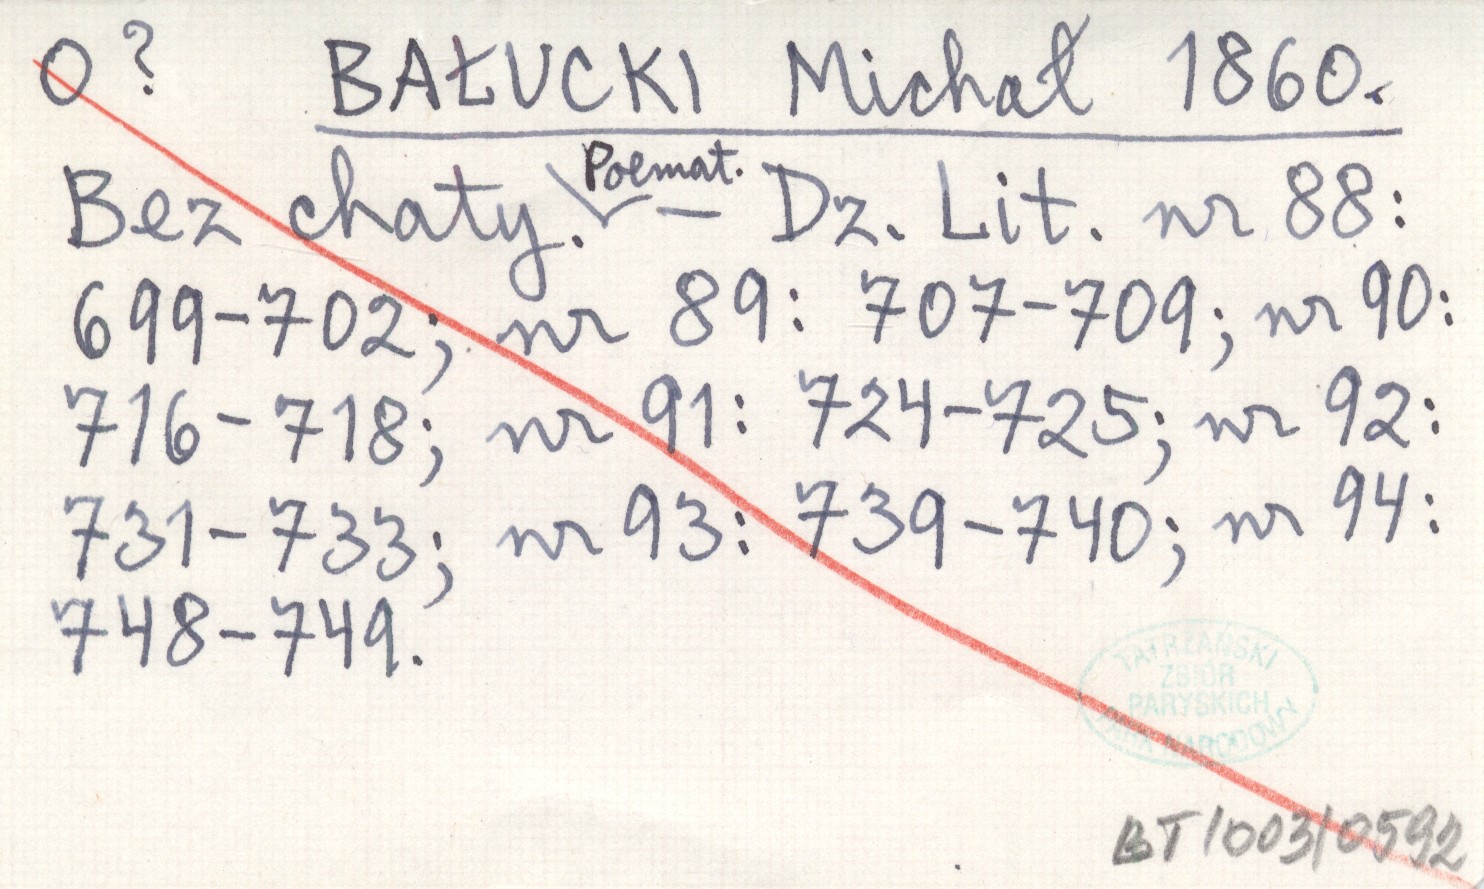 O? BAŁUCKI Michał 1860.
Bez chaty. Poemat. – Dz. Lit. nr 88:
699–702; nr 89: 707–709; nr 90:
716–718; nr 91: 724–725; nr 92:
731–733; nr 93: 739–740; nr 94:
748–749.
TATRZAŃSKI
ZBIÓR
PARYSKICH
PARK NARODOWY
BT/003/0592